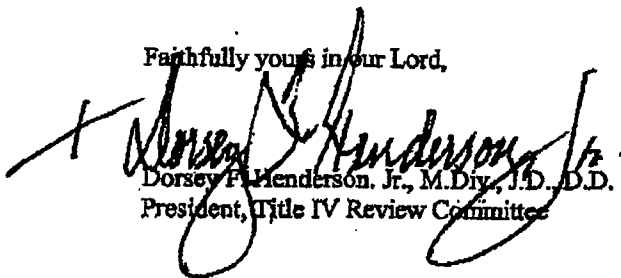 Faithfully yours in our Lord,
+ Dorsey F. Henderson, Jr.
Dorsey F. Henderson, Jr., M.Div., J.D., D.D.
President, Title IV Review Committee